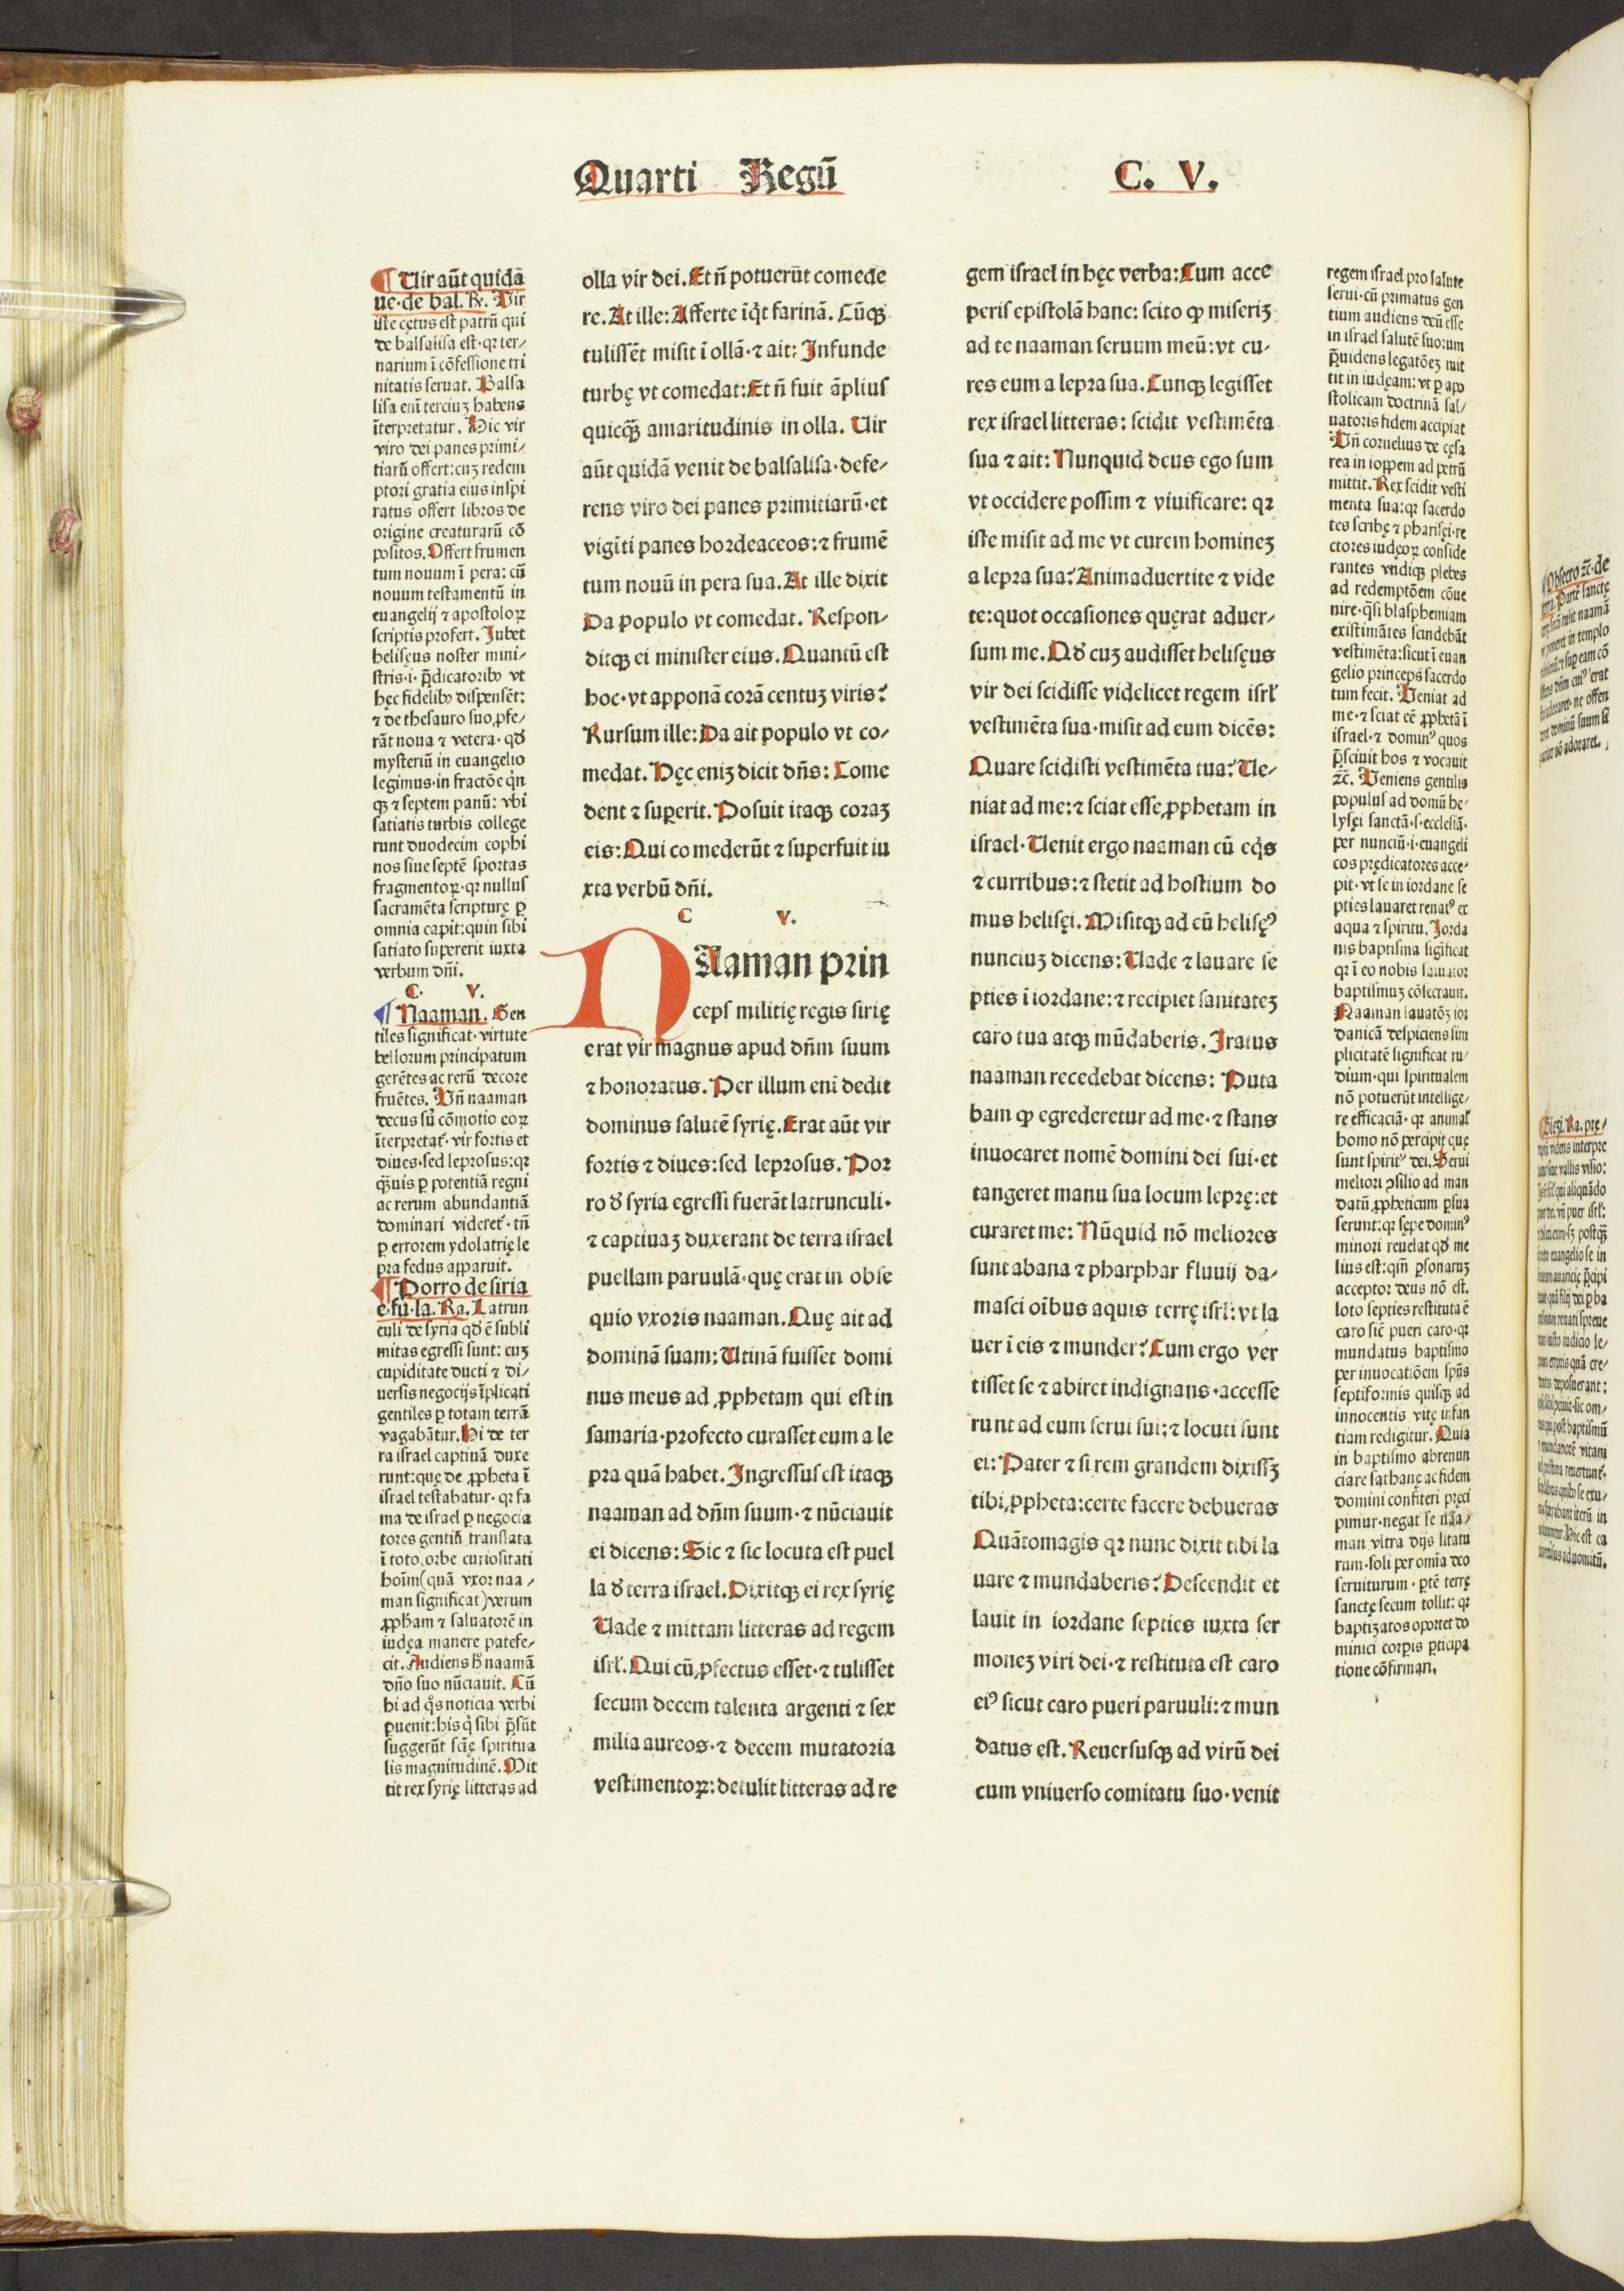 Quarti Regū C. V.
¶ Uir aūt quidā
ue·de bal. R. Vir
iste cętus est patrū qui
de balsalisa est·qꝛ ter/
narium ī cōfessione tri
nitatis seruat. Balsa
lisa enī terciuʒ habens
īterpretatur. Hic vir
viro dei panes primi/
tiarū offert:cuʒ redem
ptori gratia eius inspi
ratus offert libros de
origine creaturarū cō
positos. Offert frumen
tum nouum ī pera: cū
nouum testamentū in
euangelij ⁊ apostoloꝝ
scriptis profert. Jubet
helisęus noster mini/
stris·i·p̄dicatoribꝰ vt
hęc fidelibꝰ dispensēt:
⁊ de thesauro suo ꝓfe/
rāt noua ⁊ vetera· qđ
mysteriū in euangelio
legimus·in fractōe q̇n
qꝫ ⁊ septem panū: vbi
satiatis turbis college
runt duodecim cophi
nos siue septē sportas
fragmentoꝝ·qꝛ nullus
sacramēta scripturę ꝑ
omnia capit:quin sibi
satiato supererit iuxta
verbum dn̄i.
C. V.
¶ Naaman. Gen
tiles significat·virtute
bellorum principatum
gerētes ac rerū decore
fruētes. Vn̄ naaman
decus siū cōmotio coꝝ
īterpretat᷑· vir fortis et
diues·sed leprosus:qꝛ
qꝫuis ꝑ potentiā regni
ac rerum abundantiā
dominari videret᷑· tn̄
ꝑ errorem ydolatrię le
pra fedus apparuit.
¶ Porro de siria
e·fu·la. Ra. Latrun
culi de syria qđ ē subli
mitas egressi sunt: cuʒ
cupiditate ducti ⁊ di/
uersis negocijs īplicati
gentiles ꝑ totam terrā
vagabātur. Hi de ter
ra israel captiuā duxe
runt:quę de ꝓpheta ī
israel testabatur· qꝛ fa
ma de israel ꝑ negocia
tores gentiū translata
ī toto orbe curiositati
hoīm(quā vxor naa/
man significat)verum
ꝓpham ⁊ saluatorē in
iudęa manere patefe/
cit. Audiens h̄ naamā
dn̄o suo nūciauit. Cū
hi ad q̊s noticia verbi
ꝑuenit:his q̇ sibi p̄sūt
suggerūt scę̄ spiritua
lis magnitudinē. Mit
tit rex syrię litteras ad
olla vir dei. Et n̄ potuerūt comede
re. At ille: Afferte īq̇t farinā. Cūqꝫ
tulissēt misit ī ollā·⁊ ait: Infunde
turbę vt comedat: Et n̄ fuit āplius
quicqꝫ amaritudinis in olla. Uir
aūt quidā venit de balsalisa·defe/
rens viro dei panes primitiarū·et
vigīti panes hordeaceos:⁊ frumē
tum nouū in pera sua. At ille dixit
Da populo vt comedat. Respon/
ditqꝫ ei minister eius. Quantū est
hoc·vt apponā corā centuʒ viris?
Rursum ille: Da ait populo vt co/
medat. Hęc eniʒ dicit dn̄s: Come
dent ⁊ superit. Posuit itaqꝫ coraʒ
eis: Qui comederūt ⁊ superfuit iu
xta verbū dn̄i.
C V.
NAaman prin
ceps militię regis sirię
erat vir magnus apud dn̄m suum
⁊ honoratus. Per illum enī dedit
dominus salutē syrię. Erat aūt vir
fortis ⁊ diues:sed leprosus. Por
ro đ syria egressi fuerāt latrunculi·
⁊ captiuaʒ duxerant de terra israel
puellam paruulā·quę erat in obse
quio vxoris naaman. Quę ait ad
dominā suam: Utinā fuisset domi
nus meus ad ꝓphetam qui est in
samaria·profecto curasset eum a le
pra quā habet. Ingressus est itaqꝫ
naaman ad dn̄m suum·⁊ nūciauit
ei dicens: Sic ⁊ sic locuta est puel
la đ terra israel. Dixitqꝫ ei rex syrię
Uade ⁊ mittam litteras ad regem
isrł. Qui cū ꝓfectus esset·⁊ tulisset
secum decem talenta argenti ⁊ sex
milia aureos·⁊ decem mutatoria
vestimentoꝝ: detulit litteras ad re
gem israel in hęc verba: Cum acce
peris epistolā hanc: scito ꝙ miseriʒ
ad te naaman seruum meū: vt cu/
res eum a lepra sua. Cunqꝫ legisset
rex israel litteras: scidit vestimēta
sua ⁊ ait: Nunquid deus ego sum
vt occidere possim ⁊ viuificare: qꝛ
iste misit ad me vt curem homineʒ
a lepra sua? Animaduertite ⁊ vide
te:quot occasiones quęrat aduer/
sum me. Qđ cuʒ audisset helisęus
vir dei scidisse videlicet regem isrł
vestimēta sua·misit ad eum dicēs:
Quare scidisti vestimēta tua? Ue/
niat ad me:⁊ sciat esse ꝓphetam in
israel. Uenit ergo naaman cū eq̇s
⁊ curribus:⁊ stetit ad hostium do
mus helisęi. Misitqꝫ ad eū helisęꝰ
nunciuʒ dicens: Uade ⁊ lauare se
pties ī iordane:⁊ recipiet sanitateʒ
caro tua atqꝫ mūdaberis. Iratus
naaman recedebat dicens: Puta
bam ꝙ egrederetur ad me·⁊ stans
inuocaret nomē domini dei sui·et
tangeret manu sua locum leprę:et
curaret me: Nūquid nō meliores
sunt abana ⁊ pharphar fluuij da/
masci oībus aquis terrę isrł:vt la
uer ī eis ⁊ munder? Cum ergo ver
tisset se ⁊ abiret indignans·accesse
runt ad eum serui sui:⁊ locuti sunt
ei: Pater ⁊ si rem grandem dixissʒ
tibi ꝓpheta:certe facere debueras
Quātomagis qꝛ nunc dixit tibi la
uare ⁊ mundaberis? Descendit et
lauit in iordane septies iuxta ser
moneʒ viri dei·⁊ restituta est caro
eiꝰ sicut caro pueri paruuli:⁊ mun
datus est. Reuersusqꝫ ad virū dei
cum vniuerso comitatu suo·venit
regem israel pro salute
serui·cū primatus gen
tium audiens deū esse
in israel salutē suo:um
p̄uidens legatōeʒ mit
tit in iudęam: vt ꝑ apo
stolicam doctrinā sal/
uatoris fidem accipiat
Vn̄ cornelius de cęsa
rea in ioppem ad petrū
mittit. Rex scidit vesti
menta sua:qꝛ sacerdo
tes scribę ⁊ pharisęi·re
ctores iudęoꝝ conside
rantes vndiqꝫ plebes
ad redemptōem cōue
nire·q̇si blasphemiam
existimātes scindebāt
vestimēta:sicut ī euan
gelio princeps sacerdo
tum fecit. Veniat ad
me·⁊ sciat eē ꝓphetā ī
israel·⁊ dominꝰ quos
p̄sciuit hos ⁊ vocauit
⁊c̄. Veniens gentilis
populus ad domū he/
lysęi sanctā·s·ecclesiā·
per nunciū·i·euangeli
cos prędicatores acce/
pit·vt se in iordane se
pties lauaret renatꝰ ex
aqua ⁊ spiritu. Jorda
nis baptisma significat
qꝛ ī eo nobis saluator
baptismuʒ cōsecrauit.
Naaman lauatōʒ ior
danicā despiciens sim
plicitatē significat ru/
dium·qui spiritualem
nō potuerūt intellige/
re efficaciā· qꝛ animał
homo nō percipit quę
sunt spiritꝰ dei. Serui
meliori ꝯsilio ad man
datū ꝓpheticum ꝑsua
serunt:qꝛ sępe dominꝰ
minori reuelat qđ me
lius est:qm̄ ꝑsonaruʒ
acceptor deus nō est.
loto septies restituta ē
caro sic̄ pueri caro·qꝛ
mundatus baptismo
per inuocatiōem spūs
septiformis quisqꝫ ad
innocentis vitę infan
tiam redigitur. Quia
in baptismo abrenun
ciare sathanę ac fidem
domini confiteri pręci
pimur·negat se naa/
man vltra dijs litatu
rum·soli per omīa deo
seruiturum· ꝑtē terrę
sanctę secum tollit: qꝛ
baptizatos oportet do
minici corꝑis ꝑticipa
tione cōfirmari.